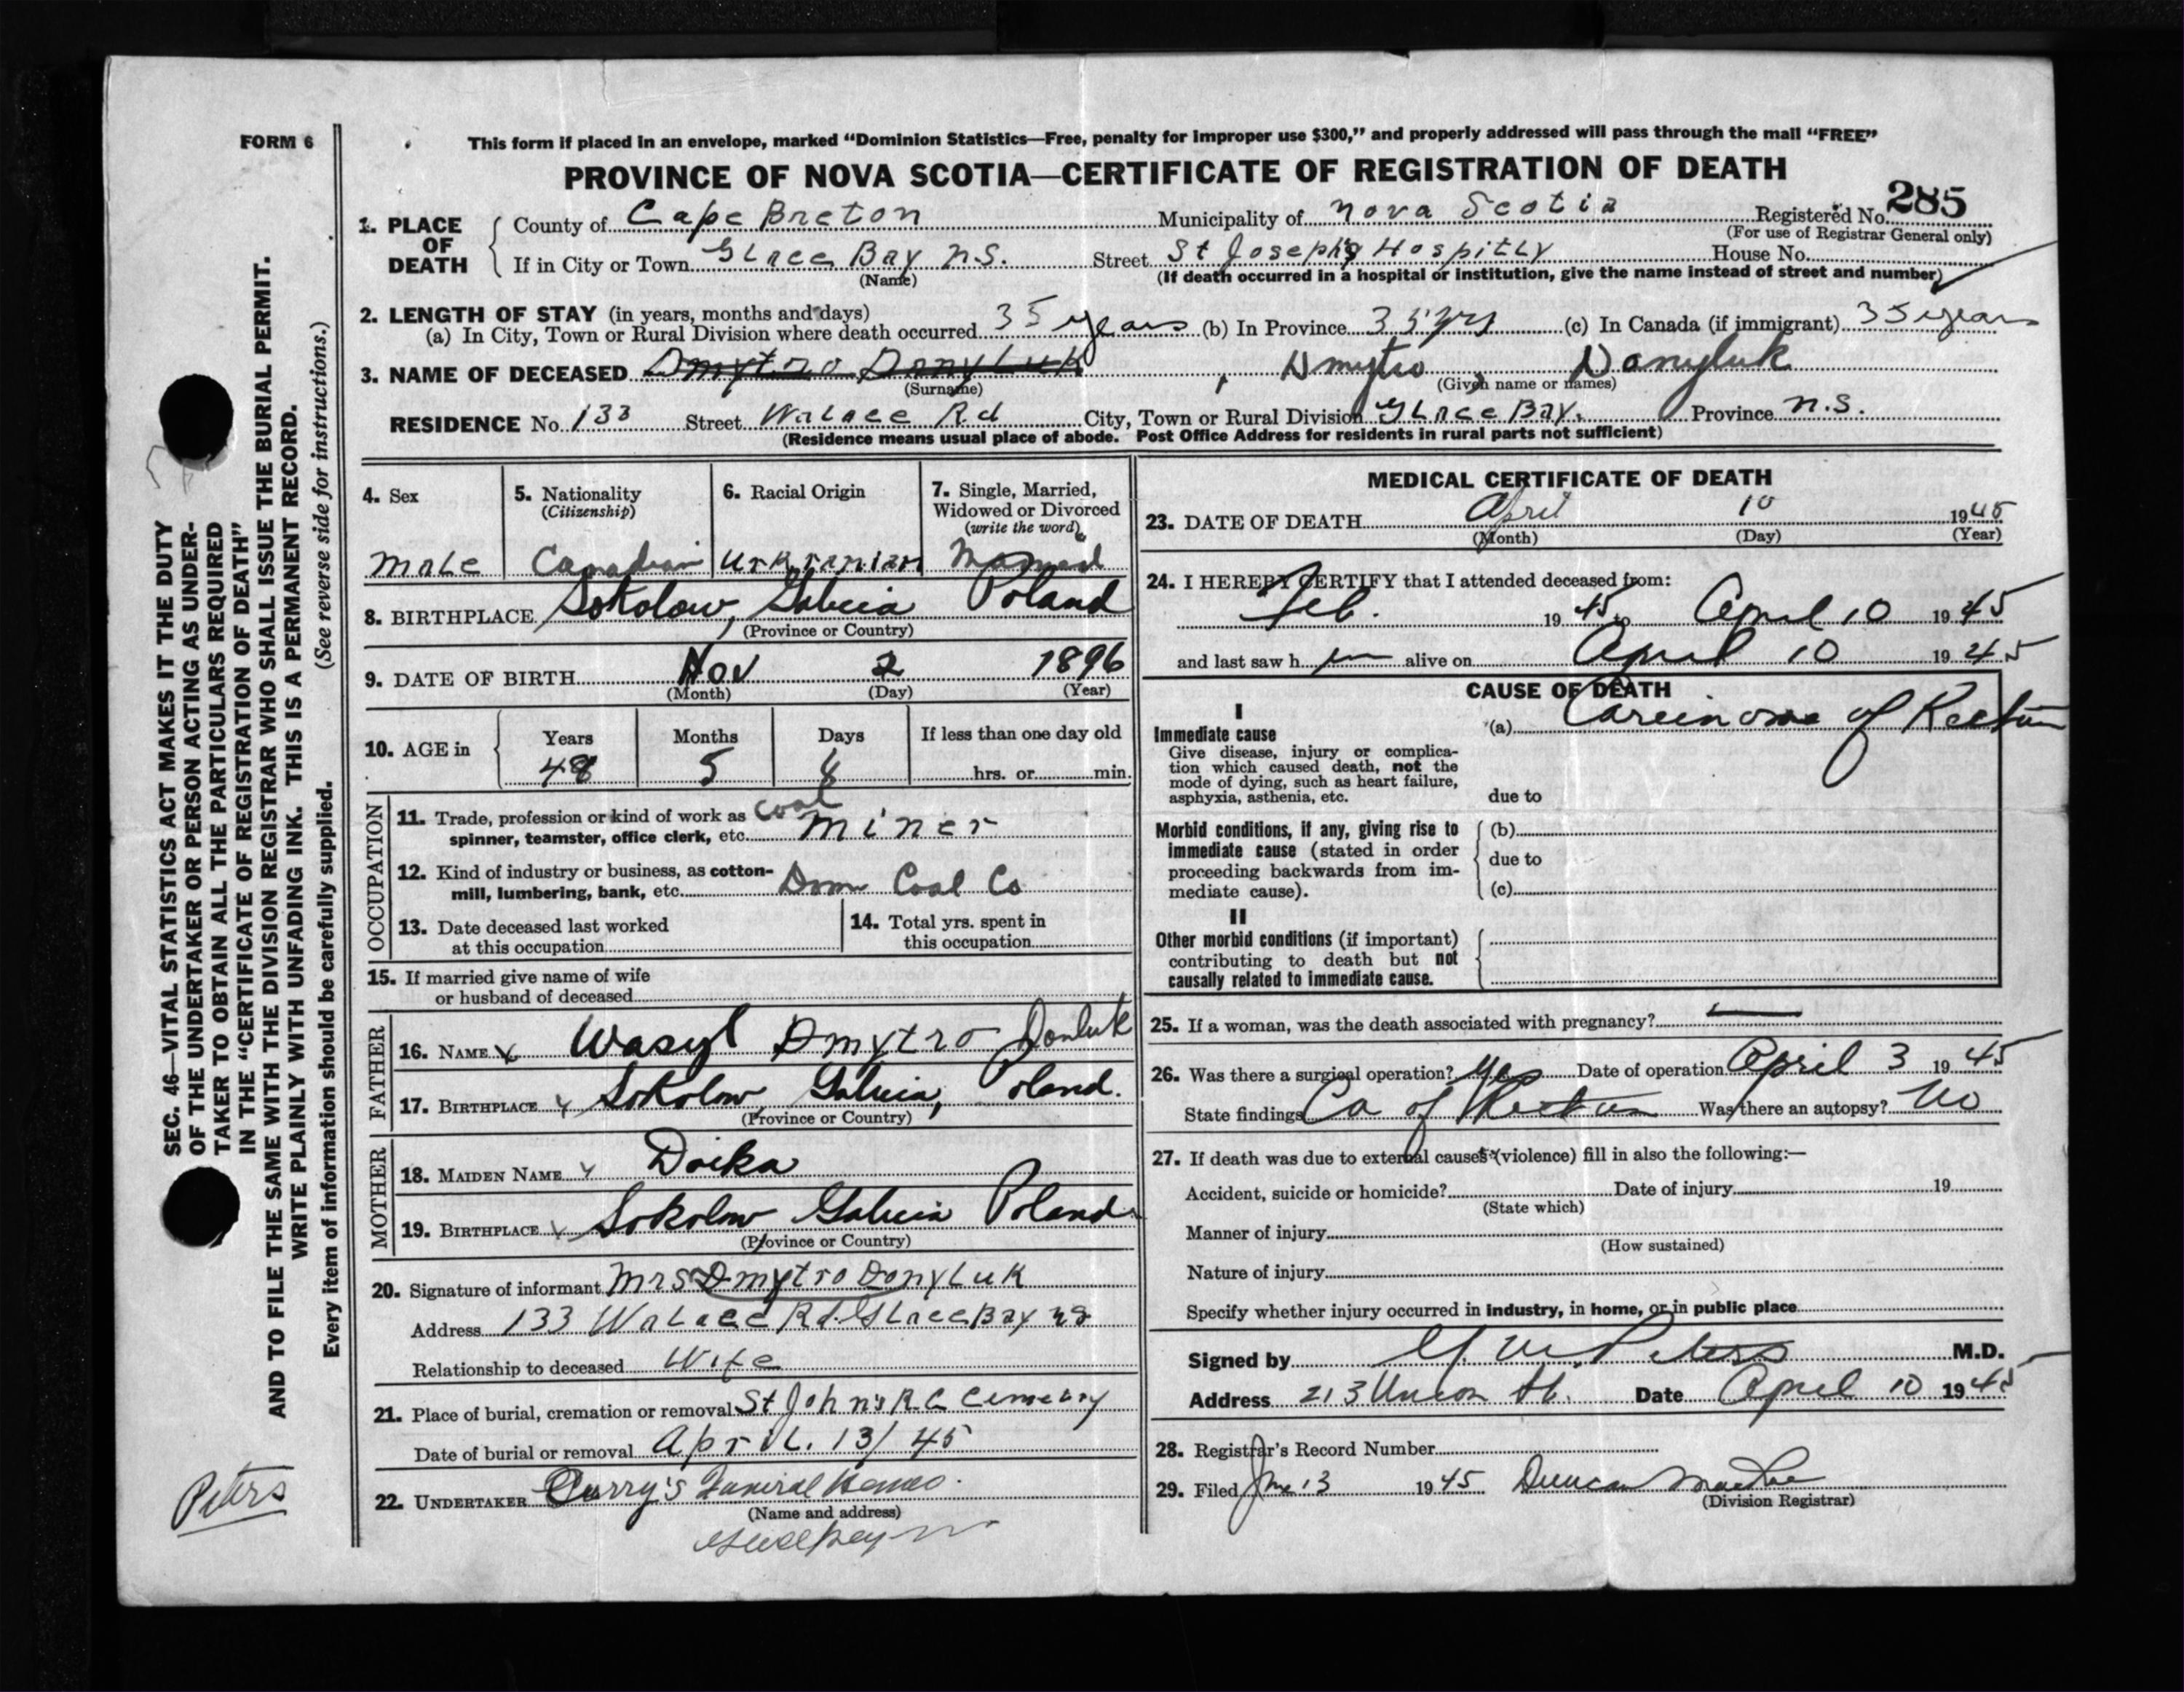 FORM 6
This form if placed in an envelope, marked “Dominion Statistics—Free, penalty for improper use $300,” and properly addressed will pass through the mail “FREE”
PROVINCE OF NOVA SCOTIA—CERTIFICATE OF REGISTRATION OF DEATH
285
1. PLACE OF DEATH
County of Cape Breton Municipality of Nova Scotia Registered No.
(For use of Registrar General only)
If in City or Town Glace Bay N.S. Street St Joseph's Hospitly House No.
(Name) (If death occurred in a hospital or institution, give the name instead of street and number)
2. LENGTH OF STAY (in years, months and days)
(a) In City, Town or Rural Division where death occurred 35 years (b) In Province 35 yrs (c) In Canada (if immigrant) 35 years
3. NAME OF DECEASED Dmytro Donyluk , Dmytro Donyluk
(Surname) (Given name or names)
RESIDENCE No. 133 Street Walace Rd City, Town or Rural Division Glace Bay. Province N.S.
(Residence means usual place of abode. Post Office Address for residents in rural parts not sufficient)
SEC. 46—VITAL STATISTICS ACT MAKES IT THE DUTY
OF THE UNDERTAKER OR PERSON ACTING AS UNDER-
TAKER TO OBTAIN ALL THE PARTICULARS REQUIRED
IN THE “CERTIFICATE OF REGISTRATION OF DEATH”
AND TO FILE THE SAME WITH THE DIVISION REGISTRAR WHO SHALL ISSUE THE BURIAL PERMIT.
WRITE PLAINLY WITH UNFADING INK. THIS IS A PERMANENT RECORD.
Every item of information should be carefully supplied. (See reverse side for instructions.)
Peters
4. Sex
male
5. Nationality
(Citizenship)
Canadian
6. Racial Origin
Urkranian
7. Single, Married,
Widowed or Divorced
(write the word)
Married
8. BIRTHPLACE Sokolow, Galicia Poland
(Province or Country)
9. DATE OF BIRTH Nov 2 1896
(Month) (Day) (Year)
10. AGE in
Years Months Days If less than one day old
48 5 8 hrs. or min.
OCCUPATION
11. Trade, profession or kind of work as
spinner, teamster, office clerk, etc. coal miner
12. Kind of industry or business, as cotton-
mill, lumbering, bank, etc. Dom Coal Co
13. Date deceased last worked
at this occupation
14. Total yrs. spent in
this occupation
15. If married give name of wife
or husband of deceased
FATHER
16. NAME Wasyl Dmytro Donluk
17. BIRTHPLACE Sokolow, Galicia, Poland.
(Province or Country)
MOTHER
18. MAIDEN NAME Doika
19. BIRTHPLACE Sokolow Galicia Poland
(Province or Country)
20. Signature of informant Mrs Dmytro Donyluk
Address 133 Walace Rd. Glace Bay NS
Relationship to deceased Wife
21. Place of burial, cremation or removal St John's R.C Cemetry
Date of burial or removal April. 13/45
22. UNDERTAKER Curry's Funiral Home.
(Name and address)
MEDICAL CERTIFICATE OF DEATH
23. DATE OF DEATH April 10 1945
(Month) (Day) (Year)
24. I HEREBY CERTIFY that I attended deceased from:
Feb. 1945 to April 10 1945
and last saw h im alive on April 10 1945
CAUSE OF DEATH
I
Immediate cause
Give disease, injury or complica-
tion which caused death, not the
mode of dying, such as heart failure,
asphyxia, asthenia, etc.
(a) Carcinoma of Rectum
due to
Morbid conditions, if any, giving rise to
immediate cause (stated in order
proceeding backwards from im-
mediate cause).
(b)
due to
(c)
II
Other morbid conditions (if important)
contributing to death but not
causally related to immediate cause.
25. If a woman, was the death associated with pregnancy? —
26. Was there a surgical operation? Yes Date of operation April 3 1945
State findings Ca of Rectum Was there an autopsy? No
27. If death was due to external causes (violence) fill in also the following:—
Accident, suicide or homicide? Date of injury 19
(State which)
Manner of injury
(How sustained)
Nature of injury
Specify whether injury occurred in industry, in home, or in public place
Signed by Peters M.D.
Address 213 Union St. Date April 10 1945
28. Registrar's Record Number
29. Filed 13 1945 Duncan
(Division Registrar)